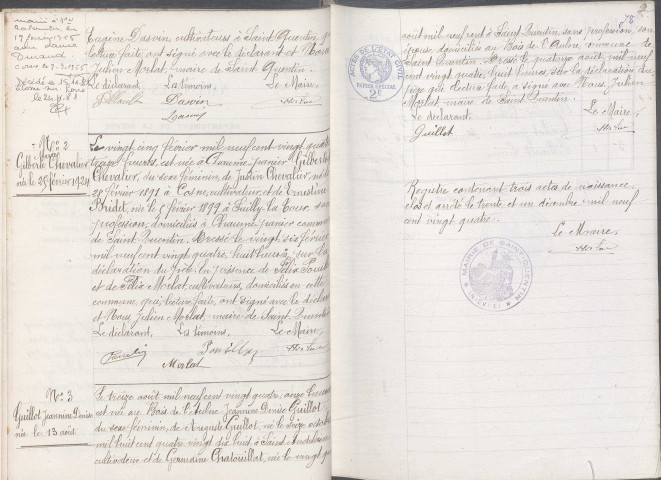 marié à St
17 janvier 1955
avec dame
Durand
Décédé
Eugène Dasvin, cultivateurs à Saint Quentin, qui
lecture faite, ont signé avec le déclarant et Nous
Julien Morlat, maire de Saint Quentin.
Le déclarant, Les témoins, Le Maire,
Dasvin
N° 2
Gilberte Chevalier
née le 25 février 1924
Le vingt cinq février mil neuf cent vingt quatre
treize heures, est née à Chaume-panier Gilberte
Chevalier, du sexe féminin, de Justin Chevalier, né le
28 février 1891 à Cosne, cultivateur, et de Ernestine
Bridet, née le 5 février 1899 à Suilly la Tour, sans
profession, domiciliés à Chaume panier commune
de Saint Quentin. Dressé le vingt six février
mil neuf cent vingt quatre, huit heures, sur la
déclaration du père, en présence de Félix
et de Félix Morlat, cultivateurs, domiciliés en cette
commune, qui, lecture faite, ont signé avec le déclarant
et Nous, Julien Morlat, maire de Saint Quentin
Le déclarant, Les témoins, Le Maire,
Morlat
N° 3
Guillot Jeannine Denise
née le 13 août
Le treize août mil neuf cent vingt quatre, onze heures
est née au Bois de l'Aulne Jeannine Denise Guillot
du sexe féminin, de Auguste Guillot, né le seize octobre
mil huit cent quatre vingt dix huit à Saint
cultivateur et de Germaine Chatouillat, née le vingt
août mil neuf cent à Saint Quentin, sans profession, son
épouse, domiciliés au Bois de l'Aulne, commune de
Saint Quentin. Dressé le quatorze août mil neuf
cent vingt quatre, huit heures, sur la déclaration du
père qui, lecture faite, a signé avec Nous, Julien
Morlat, maire de Saint Quentin.
Le déclarant, Le Maire,
Guillot
ACTES DE L'ÉTAT CIVIL
PAPIER SPÉCIAL
2F
Registre contenant trois actes de naissance
clos et arrêté le trente et un décembre mil neuf
cent vingt quatre.
Le Maire,
MAIRIE DE SAINT-QUENTIN
(NIÈVRE)